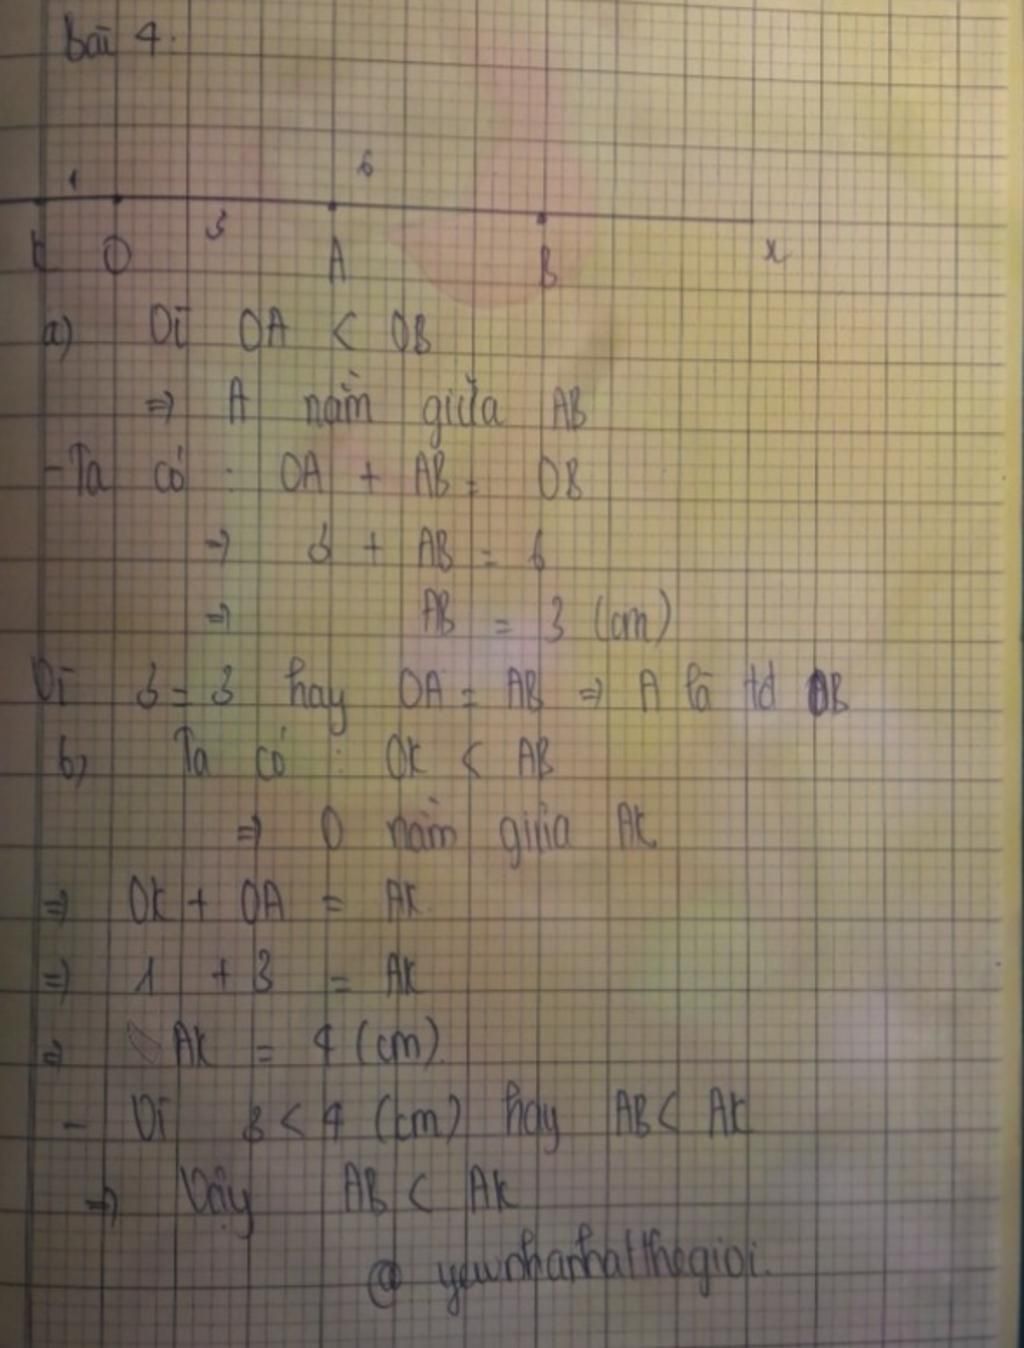 bài 4.
1 6
3
K O A B x
a) Vì OA < OB
=> A nằm giữa AB
- Ta có : OA + AB = OB
=> 3 + AB = 6
=> AB = 3 (cm)
Vì 3 = 3 hay OA = AB => A là td OB
b) Ta có : OK < AB
=> O nằm giữa AK
=> OK + OA = AK
=> 1 + 3 = AK
=> AK = 4 (cm)
- Vì 3 < 4 (cm) hay AB < AK
=> Vậy AB < AK